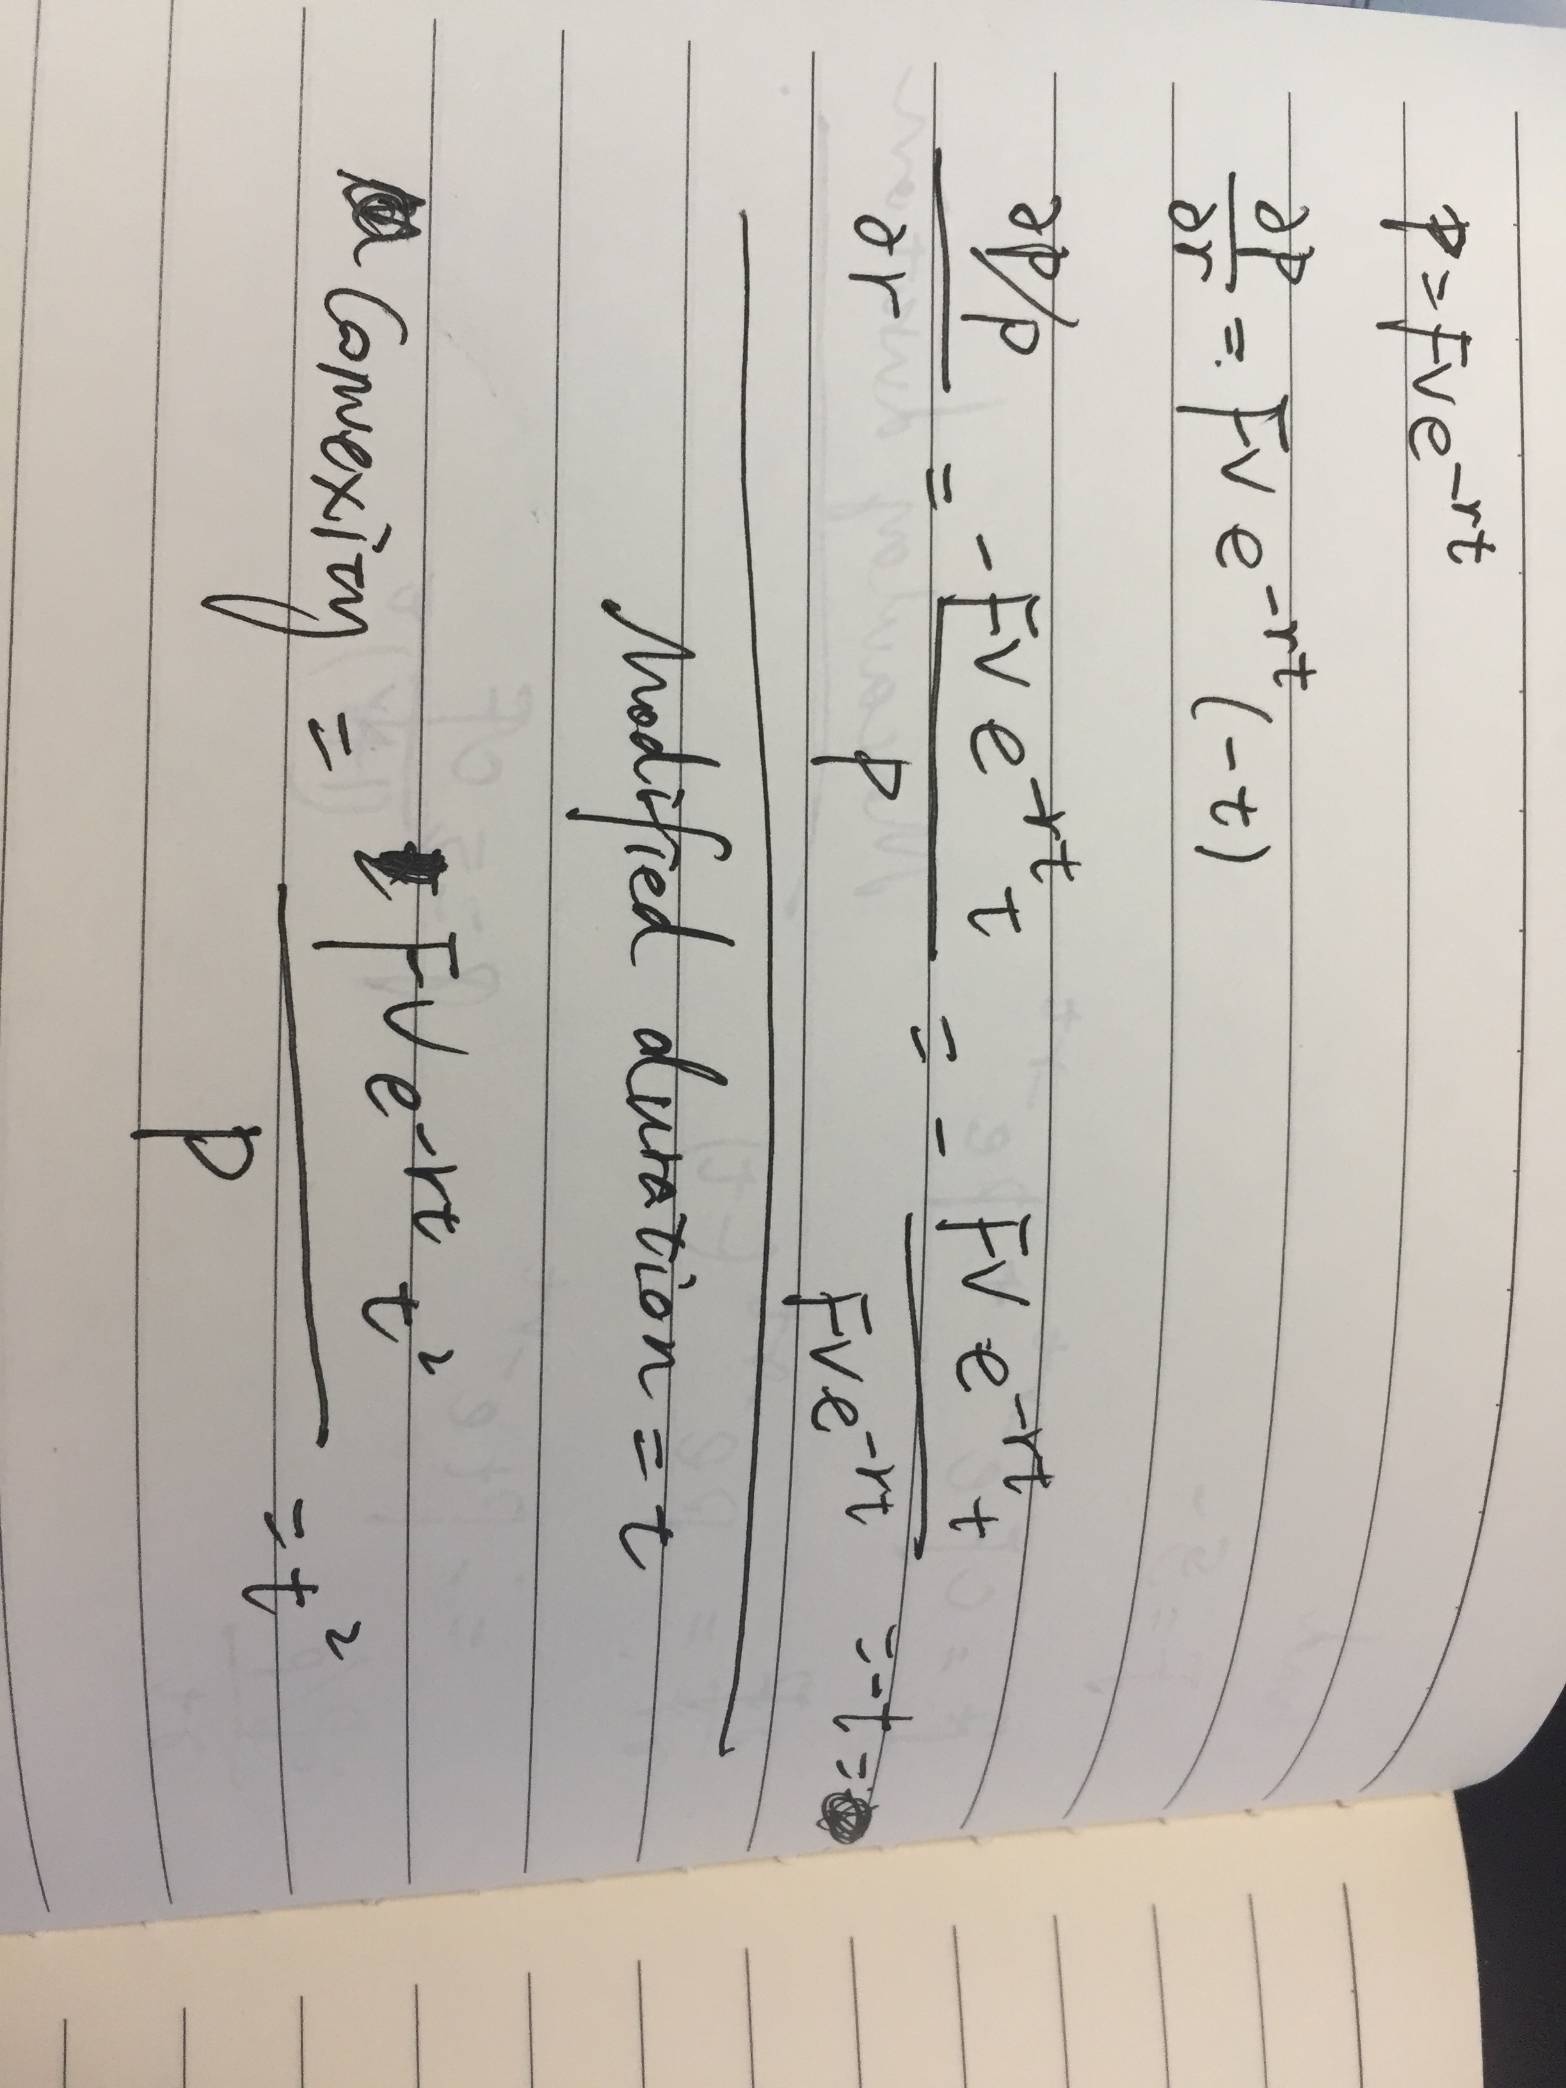 P = FV e^{-rt}
∂P/∂r = FV e^{-rt} (-t)
(∂P/P)/∂r = - FV e^{-rt} t / P = - FV e^{-rt} t / FV e^{-rt} = -t =
Modified duration = t
Convexity = FV e^{-rt} t² / P = t²